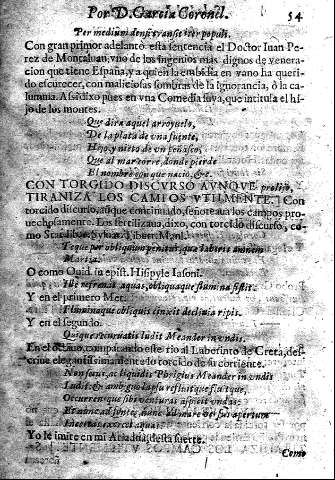 Por D. Garcia Coronel. 54
Per medium densi transit iter populi.
Con gran primor adelantò esta sentencia el Doctor Iuan Pe-
rez de Montaluan, vno de los ingenios mas dignos de venera-
cion que tiene España, y a quien la embidia en vano ha queri-
do escurecer, con maliciosas sombras de la ignorancia, ò la ca-
lumnia. Assi dixo pues en vna Comedia suya, que intitula el hi-
jo de los montes.
Que dirà aquel arroyuelo,
De la plata de vna fuente,
Hijo, y nieto de vn peñasco,
Que al mar corre, donde pierde
El nombre con que naciò, &c.
CON TORCIDO DISCVRSO AVNQVE prolijo,
TIRANIZA LOS CAMPOS VTILMENTE.] Con
torcido discurso, aunque continuado, señorea los campos pro-
uechosamente. Los fertiliza, dixo, con torcido discurso, co-
mo
Teque per obliquum penitus, qua laberis amnem
Martia.
O como Ouid. in epist. Hisipyle Iasoni.
refrenat aquas, obliquaque flumina sistit.
Y en el primero Met.
Fluminaque obliquis cinxit decliuia ripis.
Y en el segundo.
Quique recuruatis ludit Meander in vndis.
En el octauo, comparando este rio al Laberinto de Creta, des-
criue elegantissimamente lo torcido de su corriente.
Non secus, ac liquidis Phrygius Meander in vndis
Ludit, & ambiguo lapsu refluitque fluitque,
Occurrensque sibi venturas aspicit vndas:
Et nunc ad fontes, nunc ad mare versus apertum
Incertas exercet aquas.
Yo le imitè en mi Ariadna desta suerte.
Como